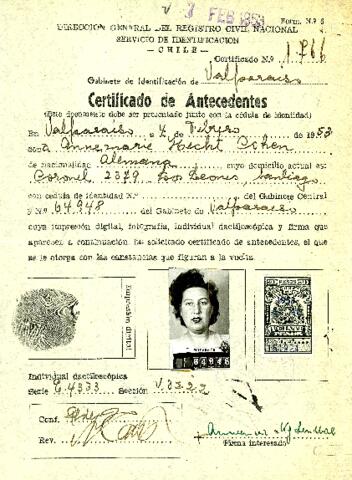 V 3 FEB 1953
Form. N.º 6
DIRECCION GENERAL DEL REGISTRO CIVIL NACIONAL
SERVICIO DE IDENTIFICACION
— CHILE —
Certificado N.º 1.766
Gabinete de Identificación de Valparaiso
Certificado de Antecedentes
(Este documento debe ser presentado junto con la cédula de identidad)
En Valparaiso a 4 de Febrero de 1953
don Annemarie Hecht Cohen
de nacionalidad Alemana cuyo domicilio actual es
Coronel 2379 Los Leones, Santiago
con cédula de identidad N.º del Gabinete Central
y N.º 64948 del Gabinete de Valparaiso
cuya impresión digital, fotografía, individual dactiloscópica y firma que
aparecen a continuación ha solicitado certificado de antecedentes, el que
se le otorga con las constancias que figuran a la vuelta.
Impresión digital
64948
Individual dactiloscópica
Serie Sección
Conf.
Rev.
Firma interesado